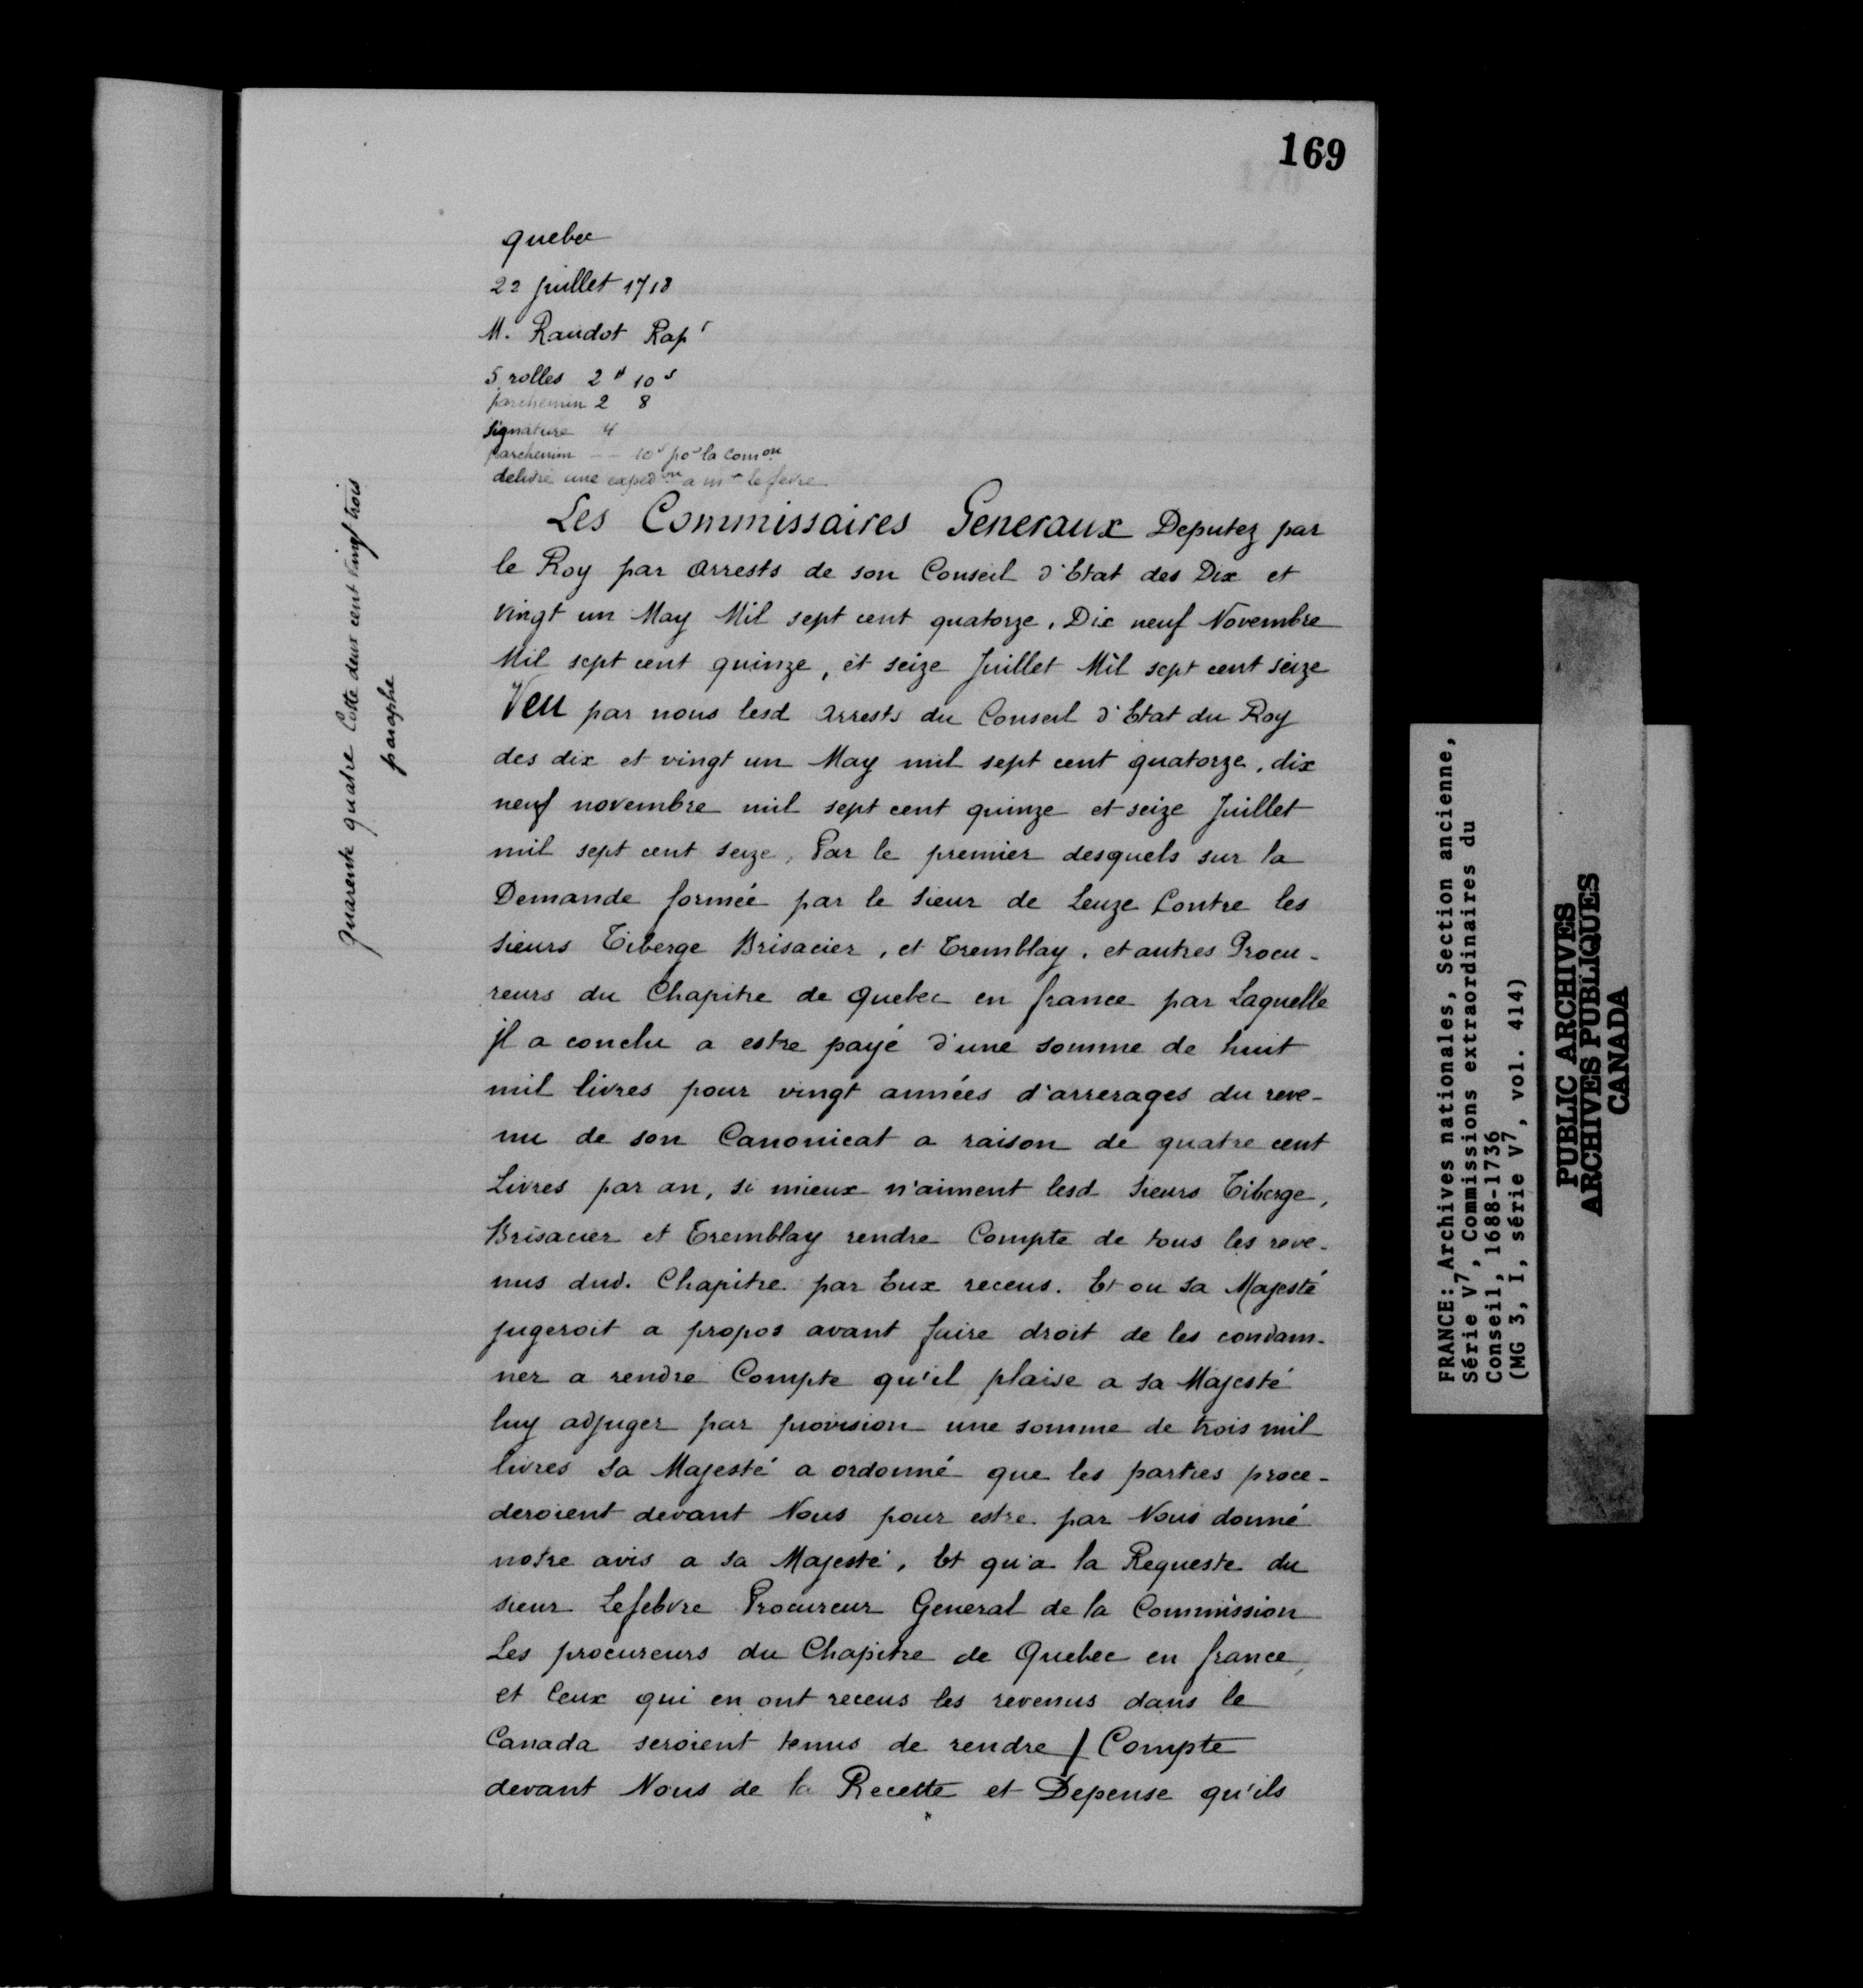 169
quebec
22 juillet 1718
M. Raudot Rapr
5 rolles 2# 10s
parchemin 2 8
signature 4
parchemin -- 10s por la Comon
delivré une expedon a mr lefevre
quarente quatre Cotte deux cent vingt trois
paraphe
Les Commissaires Generaux Deputez par
le Roy par arrests de son Conseil d'Etat des Dix et
vingt un May Mil sept cent quatorze, Dix neuf Novembre
Mil sept cent quinze, et seize Juillet Mil sept cent seize
Veu par nous lesd arrests du Conseil d'Etat du Roy
des dix et vingt un May mil sept cent quatorze, dix
neuf novembre mil sept cent quinze et seize Juillet
mil sept cent seize, Par le premier desquels sur la
Demande formée par le sieur de Leuze Contre les
sieurs Tiberge Brisacier, et Tremblay, et autres Procu-
reurs du Chapitre de Quebec en france par Laquelle
il a conclu a estre payé d'une somme de huit
mil livres pour vingt années d'arrerages du reve-
nu de son Canonicat a raison de quatre cent
Livres par an, si mieux n'aiment lesd sieurs Tiberge,
Brisacier et Tremblay rendre Compte de tous les reve-
nus dud. Chapitre par Eux receus. Et ou sa Majesté
jugeroit a propos avant faire droit de les condam-
ner a rendre Compte qu'il plaise a sa Majesté
luy adjuger par provision une somme de trois mil
livres sa Majesté a ordonné que les parties proce-
deroient devant Nous pour estre par Nous donné
notre avis a sa Majesté, Et qu'a la Requeste du
sieur Lefebvre Procureur General de la Commission
Les procureurs du Chapitre de Quebec en france,
et Ceux qui en ont receus les revenus dans le
Canada seroient tenus de rendre / Compte
devant Nous de la Recette et Depense qu'ils
FRANCE: Archives nationales, Section ancienne,
Série V7, Commissions extraordinaires du
Conseil, 1688-1736
(MG 3, I, série V7, vol. 414)
PUBLIC ARCHIVES
ARCHIVES PUBLIQUES
CANADA